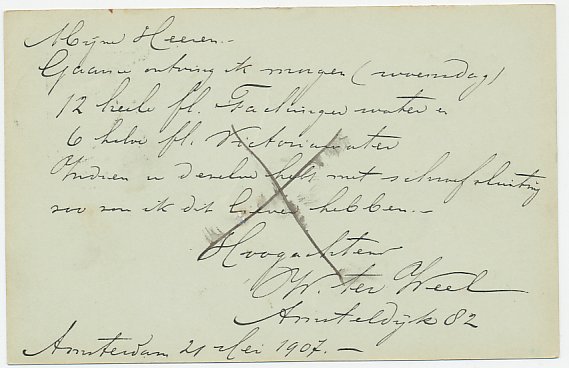 Mijne Heeren.-
Gaarne ontving ik morgen (woensdag)
12 heele fl. Fachinger water en
6 halve fl. Victoriawater
Indien u dezelve hebt met schroefsluiting
zoo zou ik dit liever hebben.-
Hoogachtend
W. ter Weel
Amsteldijk 82
Amsterdam 21 Mei 1907.-